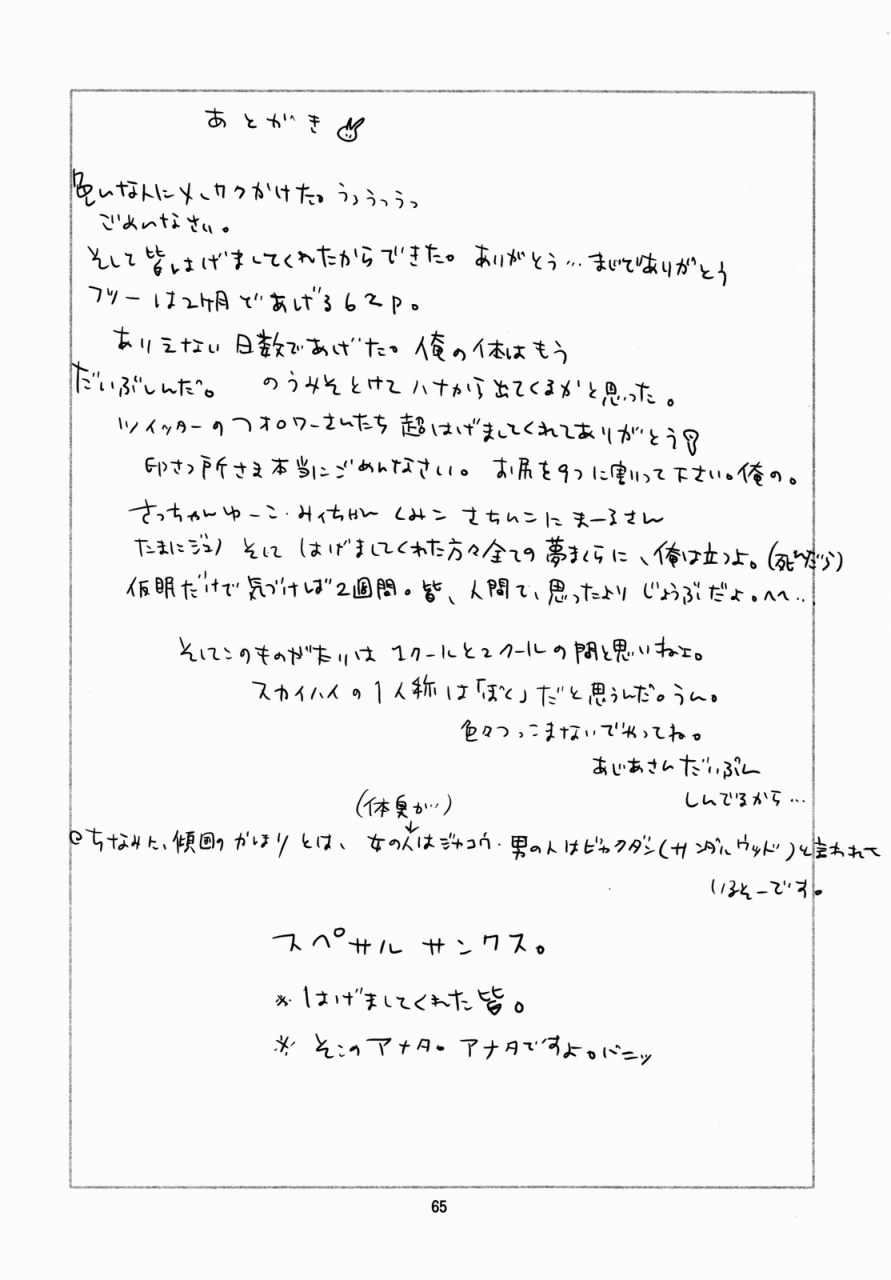 あとがき
色んな人にメーワクかけた。うっうっうっ
ごめんなさい。
そして皆はげましてくれたからできた。ありがとう…まじでありがとう
フツーは2ケ月であげる62P。
ありえない日数であげた。俺の体はもう
だいぶしんだ。 のうみそとけてハナから出てくるかと思った。
ツイッターのフォロワーさんたち超はげましてくれてありがとう
印さつ所さま本当にごめんなさい。お尻を9つに割って下さい。俺の。
さっちゃんゆーこ・みぃちゃん くみこ さちぃこに まーるさん
たまにジュノ そして はげましてくれた方々全ての夢まくらに、俺は立つよ。(死んだら)
仮眠だけで気づけば2週間。皆、人間て、思ったより じょうぶだよ。へへ…
そしてこのものがたりは 1クールと2クールの間と思いねェ。
スカイハイの1人称は「ぼく」だと思うんだ。うん。
色々つっこまないでやってね。
あじあさんだいぶん
しんでるから…
(体臭が…)
↓
@ちなみに、傾国のかほりとは、女の人はジャコウ・男の人はビャクダン(サンダルウッド)と言われて
いるそーです。
スペサル サンクス。
※はげましてくれた皆。
※そこのアナタ。アナタですよ。バニッ
65